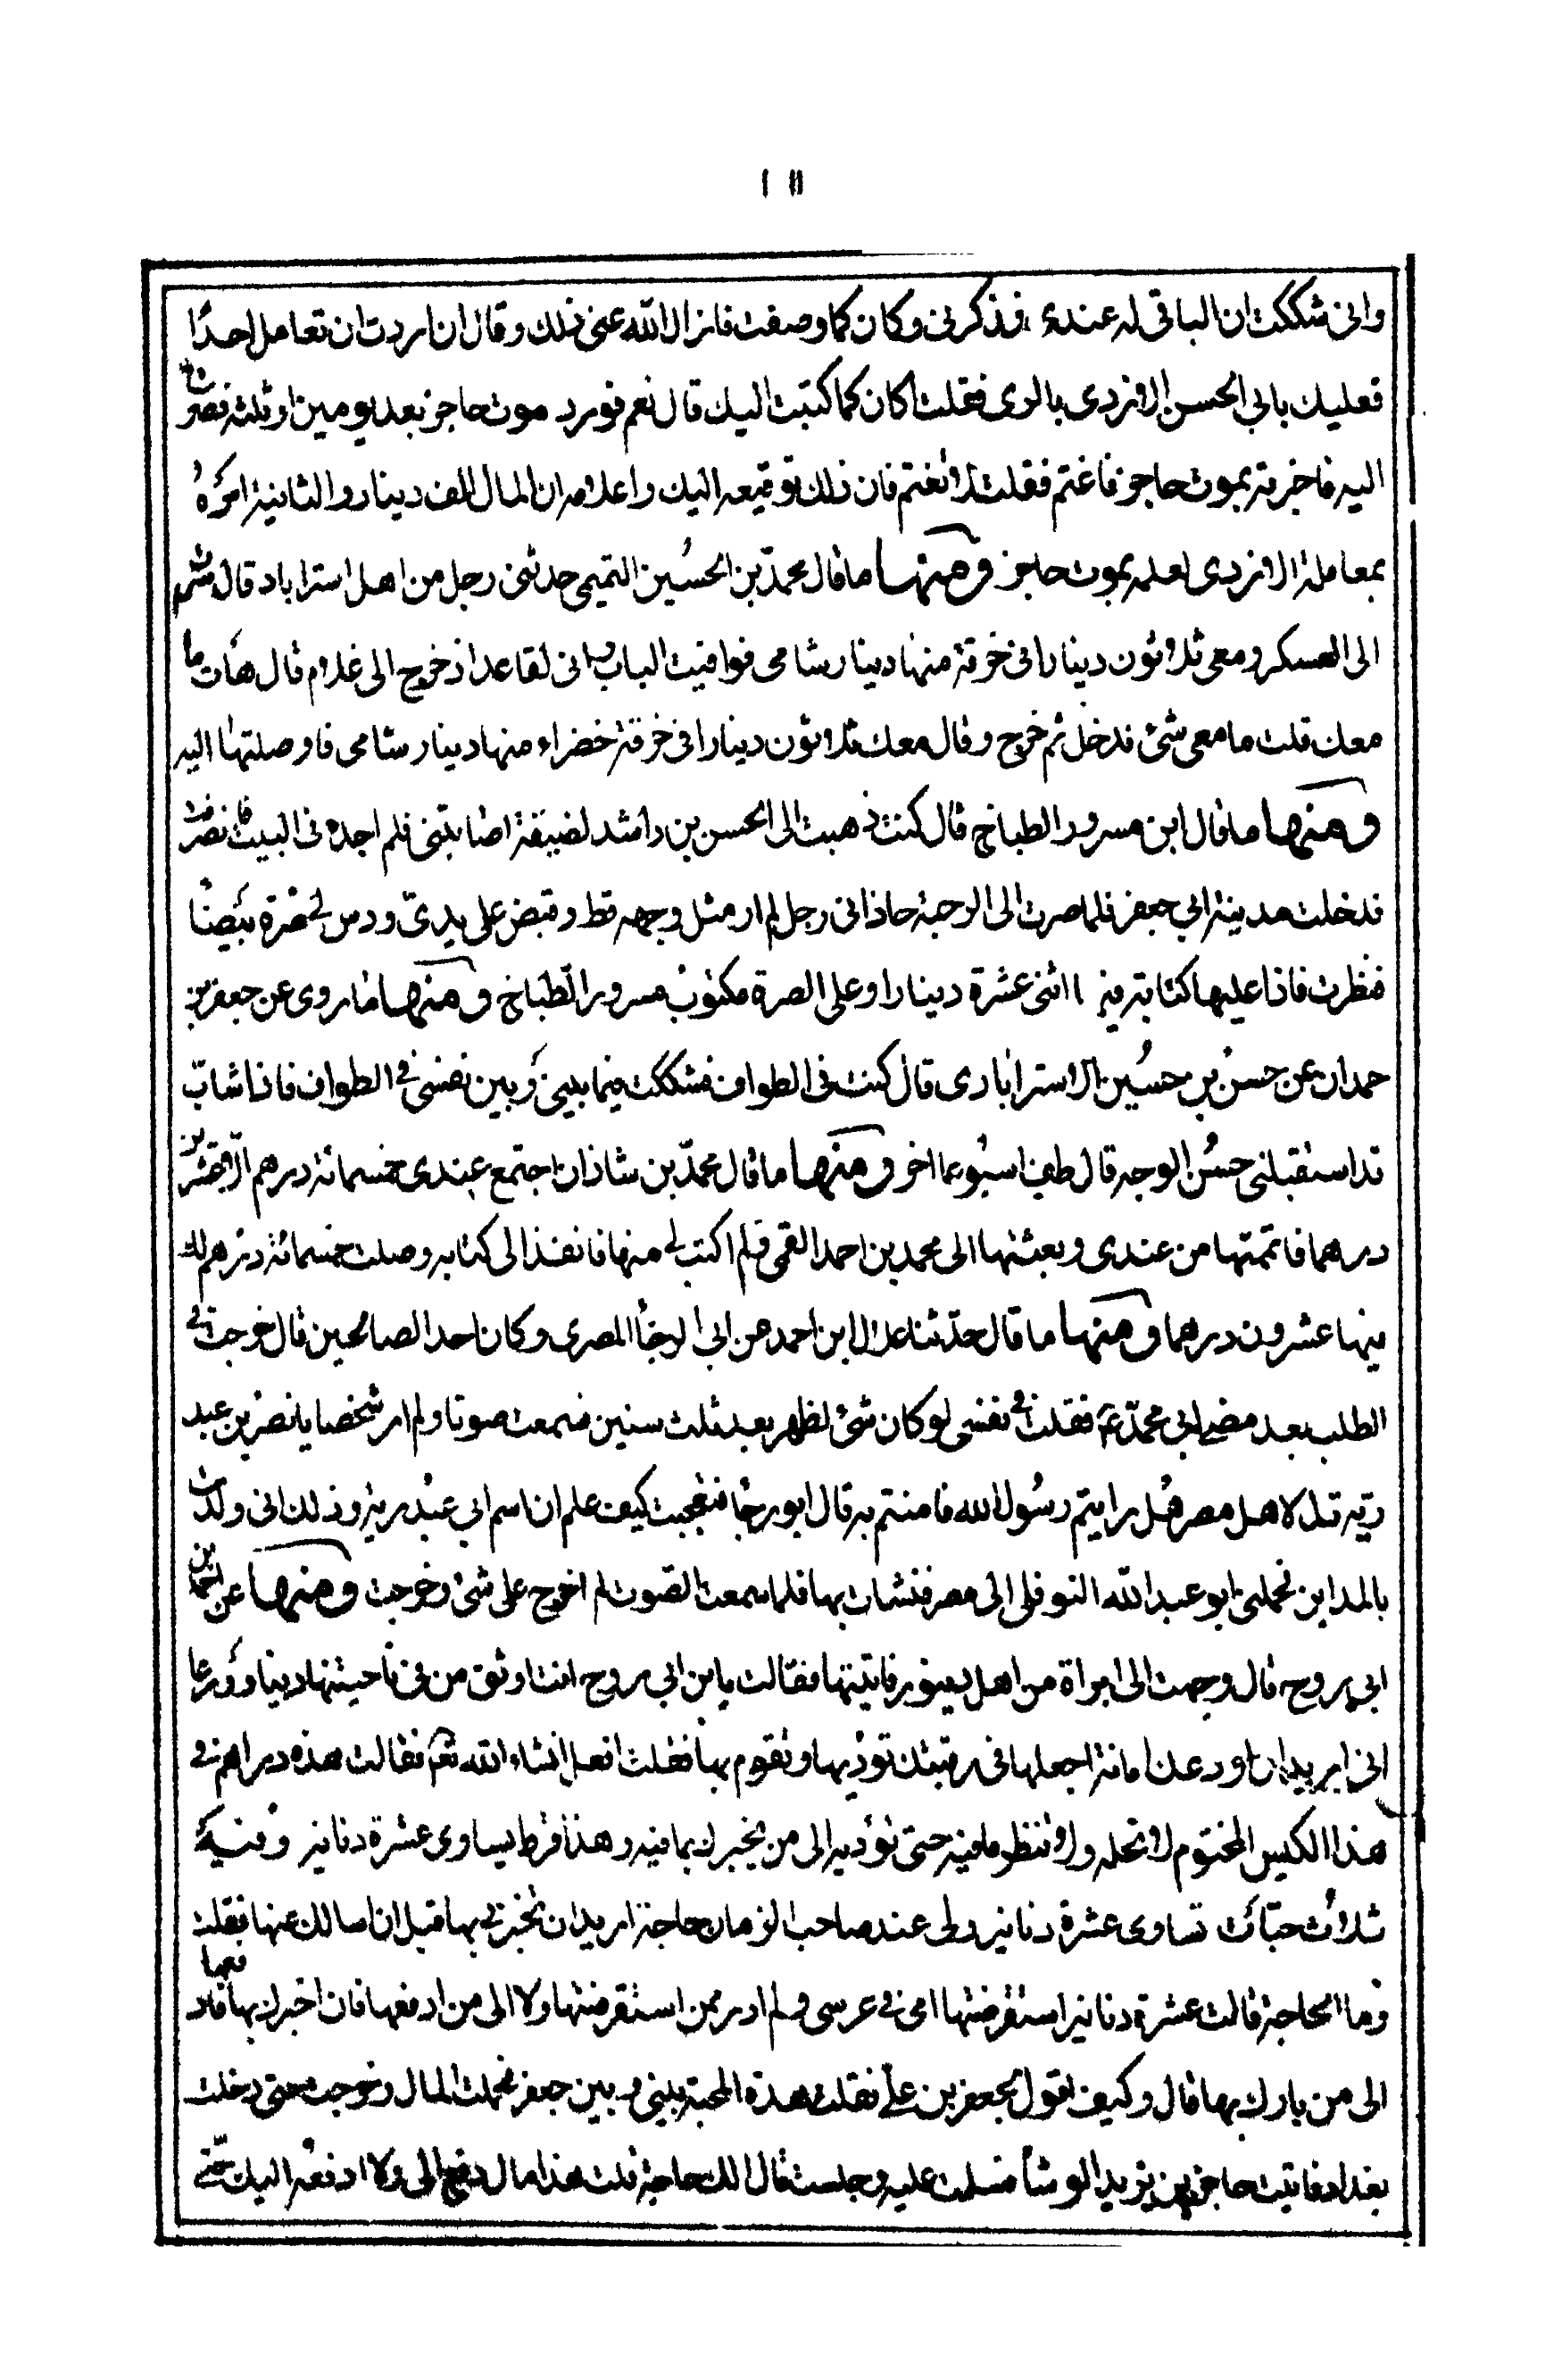 ١١١
وانى شككت ان الباقى له عندى فذكر نى وكان كما وصفت فازال الله عنى ذلك وقال ان اردت ان تعامل احدًا
فعليك بابى الحسن الازدى بالرى فقلت اكان كما كتبت اليك قال نعم فورد موت حاجز بعد يومين او ثلثة فصرت
اليه فاخبرته بموت حاجز فاغتم فقلت لا تغتم فان ذلك توقيعه اليك واعلامه ان المال الف دينار والثانية امره
بمعاملة الازدى لعلمه بموت حاجز ومنها ما قال محمّد بن الحسُين التميمى حدثنى رجل من اهل استراباد قال صرت
الى العسكر ومعى ثلاثون دينارا فى خرقة منها دينار شامى فوافيت الباب وانى لقاعد اذ خرج الى غلام قال هات ما
معك قلت ما معى شئ فدخل ثم خرج وقال معك ثلاثون دينارا فى خرقة خضراء منها دينار شامى فاوصلتها اليه
ومنها ما قال ابن مسرور الطباخ قال كنت ذهبت الى الحسن بن راشد لضيقة اصابتنى فلم اجده فى البيت فانصرفت
فدخلت مدينة ابى جعفر فلما صرت الى الرحبة حاذانى رجل لم ار مثل وجهه قط وقبض على يدىّ ودس لى صرة بيضا
فنظرت فاذا عليها كتابة فيها اثنى عشرة دينارا وعلى الصرة مكتوب مسرور الطباخ ومنها ما روى عن جعفر بن
حمدان عن حسن بن حسُين الاسترابادى قال كنت فى الطواف فشككت فيما بينى وبين نفسى فى الطواف فاذا شابّ
قد استقبلنى حسُن الوجه قال طف اسبُوعا اخر ومنها ما قال محمّد بن شاذان اجتمع عندى خمسمائة درهم الا عشرين
درهما فاتممتها من عندى وبعثتها الى محمد بن احمد القمى فلم اكتب لى منها فانفذ الى كتابه وصلت خمسمائة درهم لك
فيها عشرون درهما ومنها ما قال حدّثنا علال ابن احمد عن ابى الرجأ المصرى وكان احد الصالحين قال خرجت فى
الطلب بعد مضى ابى محمّد ع فقلت فى نفسى لو كان شئ لظهر بعد ثلث سنين فسمعت صوتا ولم ار شخصا يا نصر بن عبد
ربّه قل لاهل مصر هُل رايتم رسُول الله فامنتم به قال ابو رجا فتعجبت كيف علم ان اسم ابى عبْد ربه وذلك انى ولدت
بالمداين فحملنى ابو عبد الله النوفلى الى مصر فنشات بها فلما سمعت الصوت لم اخرج على شئ وخرجت ومنها عن احمد بن
ابى روح قال وجهت الى امراة من اهل دينور فاتيتها فقالت يا بن ابى روح انت اوثق من فى ناحيتنا دينا وورعا
انى اريد ان اودعك امانة اجعلها فى رقبتك تؤديها وتقوم بها فقلت افعل انشاء الله تعم فقالت هذه دراهم فى
هذا الكيس المختوم لا تحله ولا تنظر ما فيه حتى تؤديه الى من يخبرك بما فيه وهذا قرط يساوى عشرة دنانير وفيه
ثلاث حبّات تساوى عشرة دنانير ولى عند صاحب الزمان حاجة اريد ان تخبرنى بها قبل ان اسالك عنها فقلت
وما الحاجة قالت عشرة دنانير استقرضتها امى فى عرسى ولم ادر ممن استقرضتها ولا الى من ادفعها فان اخبرك بها فادفعها
الى من يارك بها قال وكيف اقول لجعفر بن على فقلت هذه المحبة بينى وبين جعفر فحملت المال وخرجت حتى دخلت
بغداد فاتيت حاجز بن يزيد الوشأ فسلمت عليه وجلست قال الك حاجة قلت هذا مال دفع الى ولا ادفعه اليك حتى